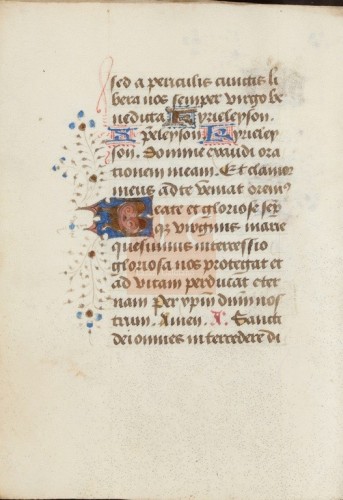 sed a periculis cunctis li
bera nos semper virgo be
nedicta Kyrieleyson.
Xpeleyson Kyrieley
son. Domine exaudi ora
tionem meam. Et clamor
meus ad te veniat orem⁹
Beate et gloriose semp̄
q₃ virginis marie
quesumus intercessio
gloriosa nos protegat et
ad vitam perducat eter
nam Per xp̄m dn̄m nos
trum. Amen. A. Sancti
dei omnes intercedere di